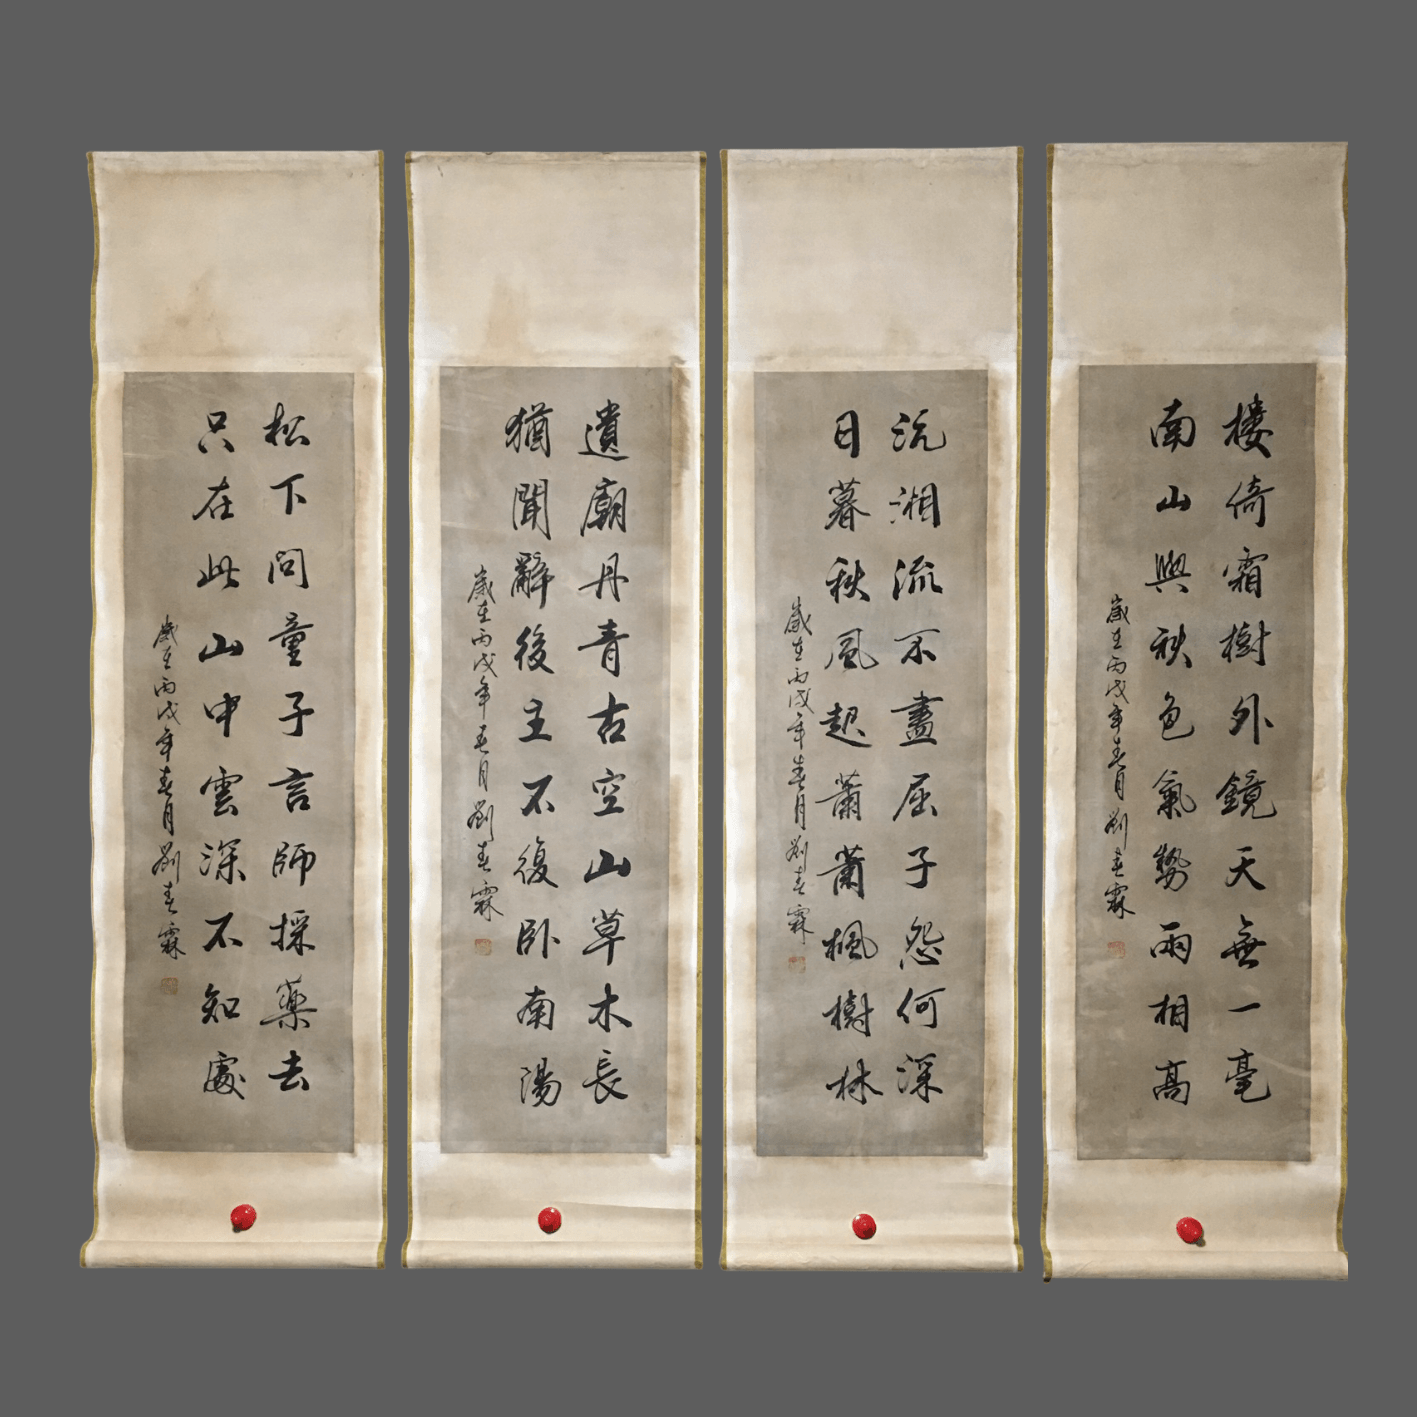 樓倚霜樹外鏡天無一毫
南山與秋色氣勢兩相高
歲在丙戌年春月劉春霖
沅湘流不盡屈子怨何深
日暮秋風起蕭蕭楓樹林
歲在丙戌年春月劉春霖
遺廟丹青古空山草木長
猶聞辭後主不復卧南陽
歲在丙戌年春月劉春霖
松下問童子言師採藥去
只在此山中雲深不知處
歲在丙戌年春月劉春霖